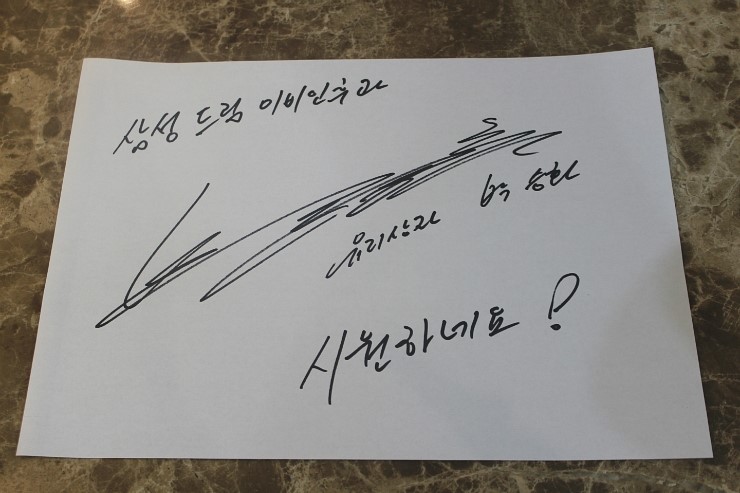 삼성 드림 이비인후과
유리상자 박승화
시원하네요!